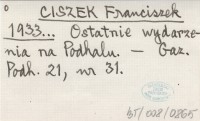 CISZEK Franciszek
1933... Ostatnie wydarze-
nia na Podhalu. — Gaz.
Podh. 21, nr 31.
bT/008/0865